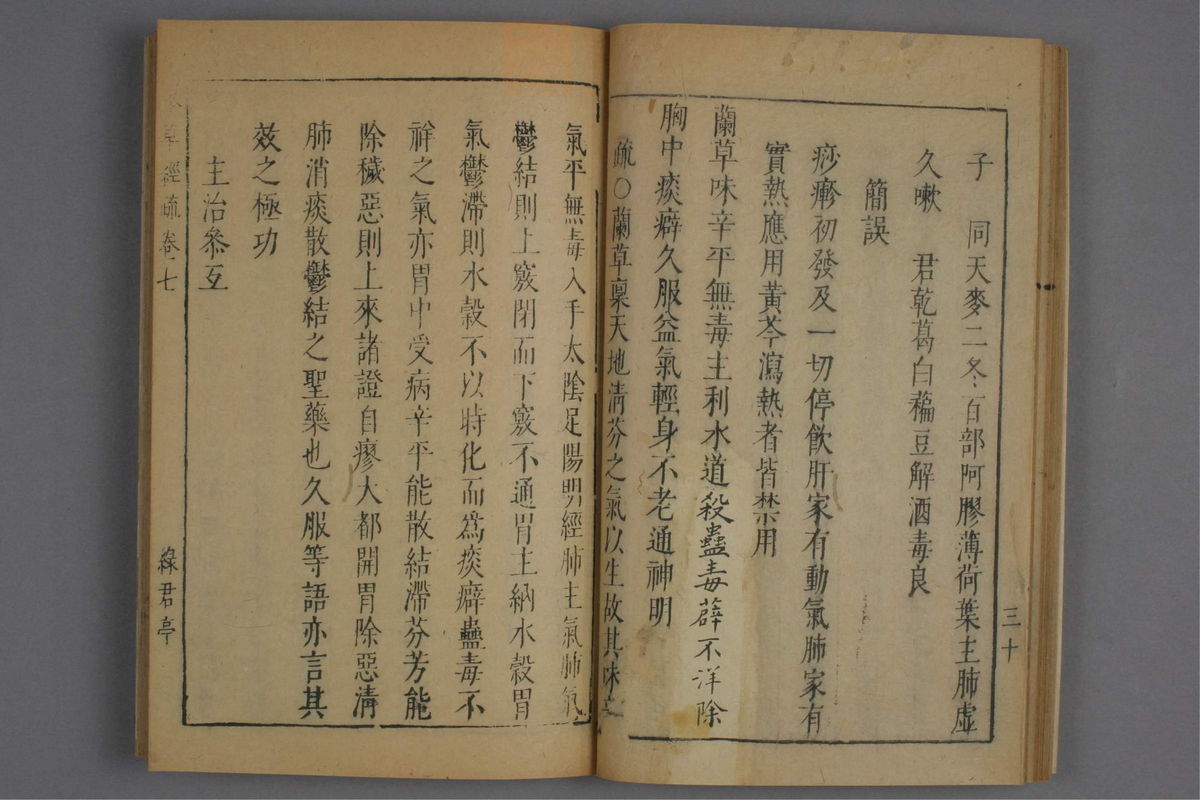 子　同天麥二冬百部阿膠薄荷葉主肺虛
久嗽　君乾葛白藊豆解酒毒良
簡誤
痧瘮初發及一切停飲肝家有動氣肺家有
實熱應用黃芩瀉熱者皆禁用
蘭草味辛平無毒主利水道殺蠱毒薜不洋除
胸中痰癖久服益氣輕身不老通神明
疏○蘭草稟天地清芬之氣以生故其味辛
三十
氣平無毒入手太陰足陽明經肺主氣肺氣
鬱結則上竅閉而下竅不通胃主納水穀胃
氣鬱滯則水穀不以時化而為痰癖蠱毒不
祥之氣亦胃中受病辛平能散結滯芬芳能
除穢惡則上來諸證自瘳大都開胃除惡清
肺消痰散鬱結之聖藥也久服等語亦言其
效之極功
主治叅互
草經疏卷七
綠君亭